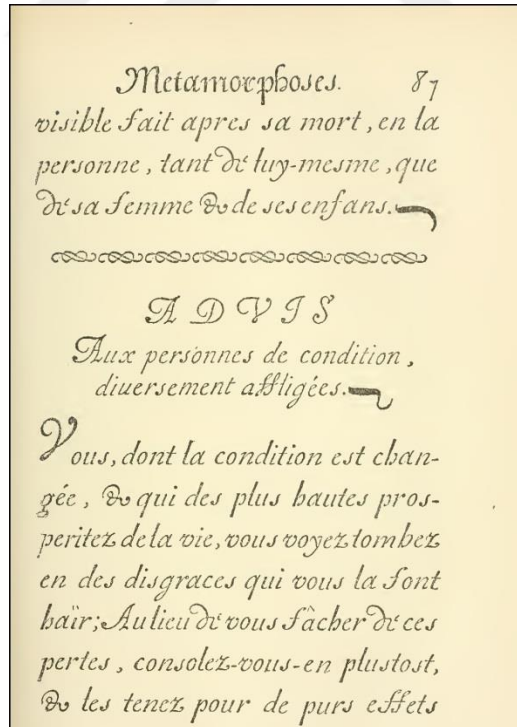 Metamorphoses. 87
visible fait apres sa mort, en la
personne, tant de luy-mesme, que
de sa femme & de ses enfans.
ADVIS
Aux personnes de condition,
diuersement affligées.
Vous, dont la condition est chan-
gée, & qui des plus hautes pros-
peritez de la vie, vous voyez tombez
en des disgraces qui vous la font
haïr; Au lieu de vous fâcher de ces
pertes, consolez-vous-en plustost,
& les tenez pour de purs effets